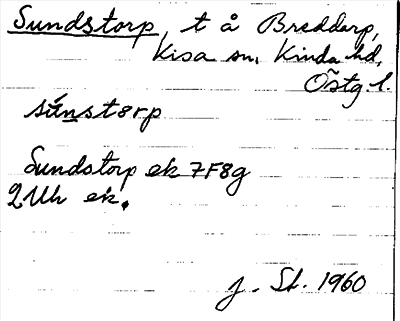 Sundstorp, t å Breddarp,
Kisa sn, Kinda hd,
Östg l.
súnstørp
Sundstorp ek 7F8g
2 Uh ek.
J. St. 1960